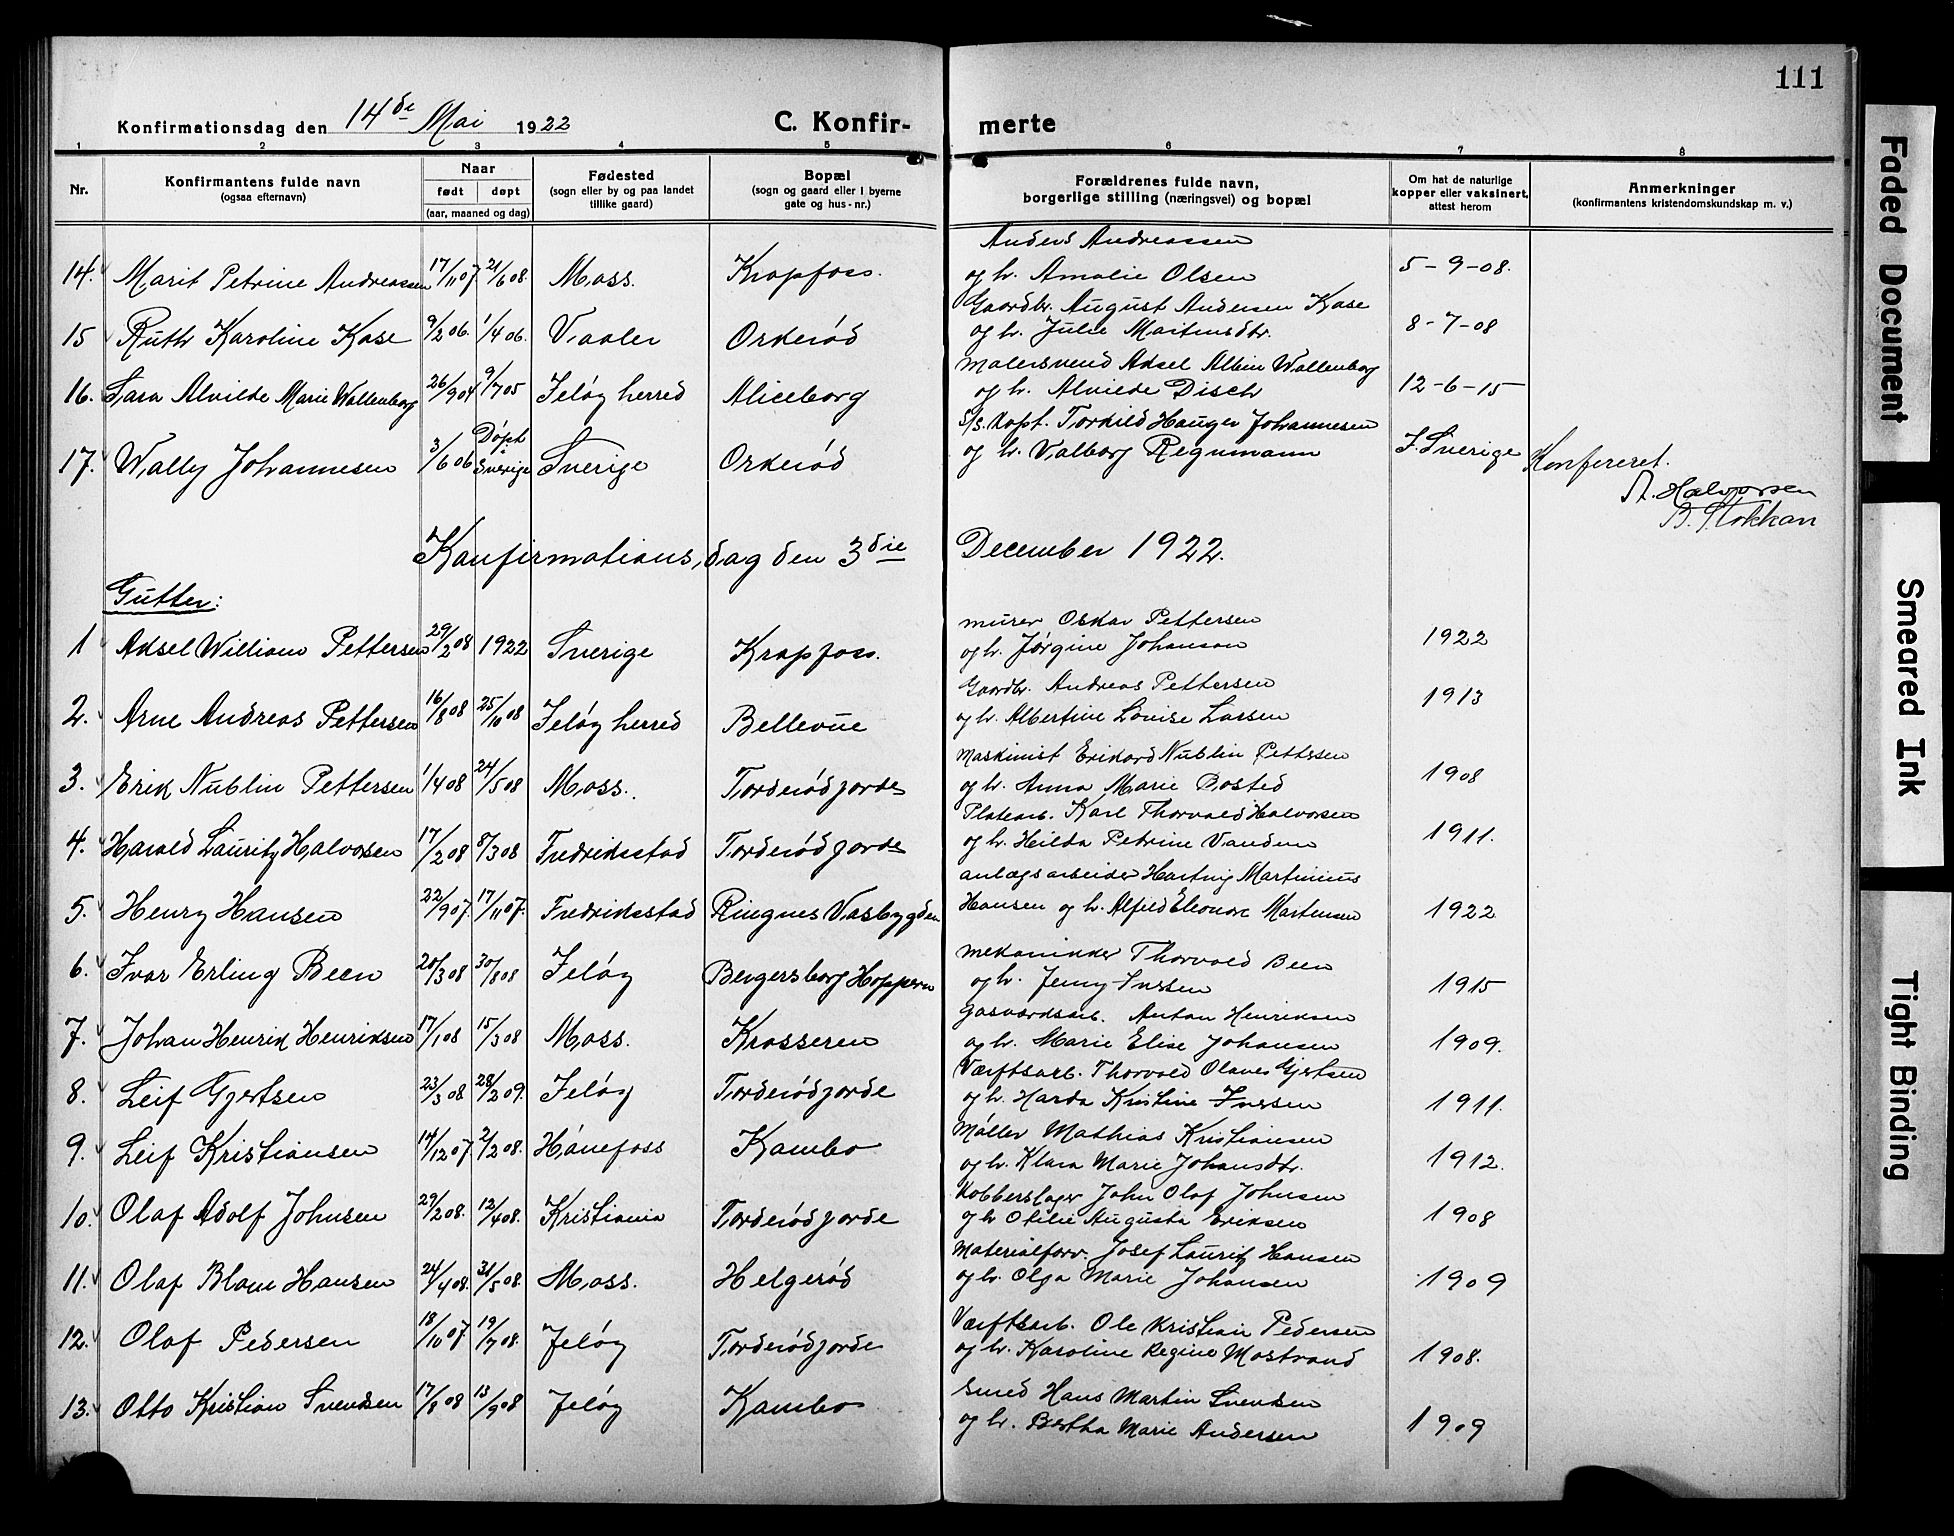 111
Konfirmationsdag den 14de Mai 1922 C. Konfir- merte
1 2 3 4 5 6 7 8
Nr. Konfirmantens fulde navn (ogsaa efternavn) Naar født døpt (aar, maaned og dag) Fødested (sogn eller by og paa landet tillike gaard) Bopæl (sogn og gaard eller i byerne gate og hus-nr.) Forældrenes fulde navn, borgerlige stilling (næringsvei) og bopæl Om hat de naturlige kopper eller vaksinert, attest herom Anmerkninger (konfirmantens kristendomskundskap m. v.)
Anders Andreassen
14. Marit Petrine Andreassen 17/11 07. 21/6 08. Moss. Krapfoss. og h. Amalie Olsen 5-9-08.
Gaardbr. August Andersen Kase
15 Ruth Karoline Kase 9/2 06. 1/4 06. Vaaler Orkerød og h. Julie Martinsdtr. 8-7-08
Malersvend Aksel Albin Wallenborg
16. Sara Alvilde Marie Wallenborg 26/9 04 9/7 05 Jeløy herred Aliceborg og h. Alvilde Disch 12-6-15
S/S. Kapt. Torkild Hauger Johannesen
17. Wally Johannesen 3/6 06 Døpt i Sverige Sverige Orkerød og h. Valborg Regnmann I. Sverige Konfereret.
A. Halvorsen
B. Stokkan
Konfirmations,dag den 3die December 1922.
Gutter:
murer Oskar Pettersen
1 Aksel William Pettersen 29/2 08 1922 Sverige Krapfoss. og h. Jørgine Johanson 1922
Gaardbr. Andreas Pettersen
2. Arne Andreas Pettersen 16/8 08 25/10 08 Jeløy herred Bellevue og h. Albertine Louise Larsen 1913
Maskinist Erikard Nublin Pettersen
3. Erik Nublin Pettersen 1/4 08 24/5 08 Moss. Torderødgjorde og h. Anna Marie Bosted 1908
Platearb. Karl Thorvald Halvorsen
4. Harald Lauritz Halvorsen 17/2 08 8/3 08 Fredriksstad Torderødgjorde og h. Hilda Petrine 1911.
anlægsarbeider Hartvig Martinius
5. Henry Hansen 22/9 07. 17/11 07. Fredriksstad Ringnes Vasbygden Hansen og h. Alfild Eleonore Martensen 1922
mekaniker Thorvald Been
6. Ivar Erling Been 20/3 08 30/8 08 Jeløy Bergersborg Hoppern og h. Jenny Iversen 1915
Gasværksarb. Anton Henriksen
7. Johan Henrik Henriksen 17/1 08 15/3 08 Moss. Krosseren og h. Marie Elise Johansen 1909.
Værftsarb. Thorvald Olaves Gjertsen
8. Leif Gjertsen 23/3 08 28/2 09. Jeløy Torderødgjorde og h. Harda Kristine Iversen 1911.
Møller Mathias Kristiansen
9. Leif Kristiansen 14/12 07. 2/2 08. Hønefoss Kambo og h. Klara Marie Johansdtr. 1912.
Kobberslager John Olaf Johnsen
10. Olaf Adolf Johnsen 29/2 08. 12/4 08. Kristiania Torderødgjorde og h Otilie Augusta Eriksen 1908
Materialforv. Josef Lauritz Hansen
11. Olaf Blom Hansen 24/4 08. 31/5 08. Moss. Helgerød og h. Olga Marie Johansen 1909
Værftsarb. Ole Kristian Pedersen
12. Olaf Pedersen 18/10 07. 19/7 08. Jeløy Torderødgjorde og h. Karoline Regine Mostrand 1908.
Smed Hans Martin Svendsen
13. Otto Kristian Svendsen 17/8 08 13/9 08 Jeløy Kambo og h. Bertha Marie Andersen 1909
Faded Document
Smeared Ink
Tight Binding